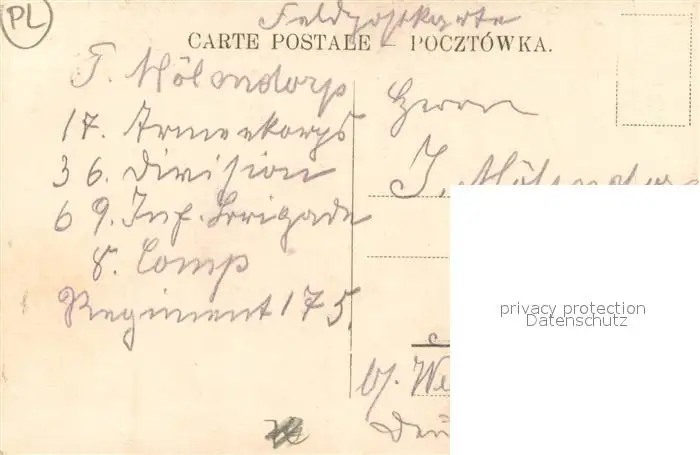 PL
Feldpostkarte
CARTE POSTALE – POCZTÓWKA.
T. Mölendorp
17. Armeekorps
36. Division
69. Inf. Brigade
8. Comp
Regiment 175.
Herrn
J.
b/. We
Deu
privacy protection
Datenschutz